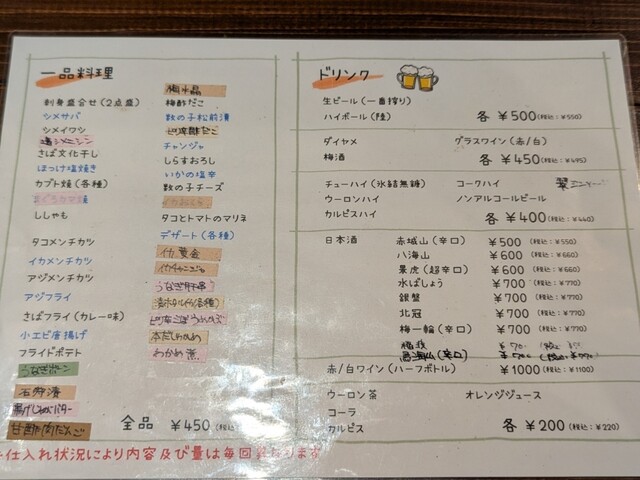 一品料理
刺身盛合せ(2点盛)
シメサバ
シメイワシ
さば文化干し
ほっけ塩焼き
カブト焼(各種)
ししゃも
タコメンチカツ
イカメンチカツ
アジメンチカツ
アジフライ
さばフライ(カレー味)
小エビ唐揚げ
フライドポテト
うなぎポン
石狩漬
揚げじゃがバター
甘酢肉だんご
梅水晶
梅酢だこ
数の子松前漬
チャンジャ
しらすおろし
いかの塩辛
数の子チーズ
タコとトマトのマリネ
デザート(各種)
イカ黄金
うなぎ肝串
本だしわかめ
わかめ煮
全品 ¥450
仕入れ状況により内容及び量は毎回
ドリンク
生ビール(一番搾り)
ハイボール(陸) 各 ¥500(税込:¥550)
ダイヤメ グラスワイン(赤/白)
梅酒 各 ¥450(税込:¥495)
チューハイ(氷結無糖) コークハイ
ウーロンハイ ノンアルコールビール
カルピスハイ 各 ¥400(税込:¥440)
日本酒 赤城山(辛口) ¥500(税込:¥550)
八海山 ¥600(税込:¥660)
景虎(超辛口) ¥600(税込:¥660)
水ばしょう ¥700(税込:¥770)
銀盤 ¥700(税込:¥770)
北冠 ¥700(税込:¥770)
梅一輪(辛口) ¥700(税込:¥770)
赤/白ワイン(ハーフボトル) ¥1000(税込:¥1100)
ウーロン茶 オレンジジュース
コーラ
カルピス 各 ¥200(税込:¥220)